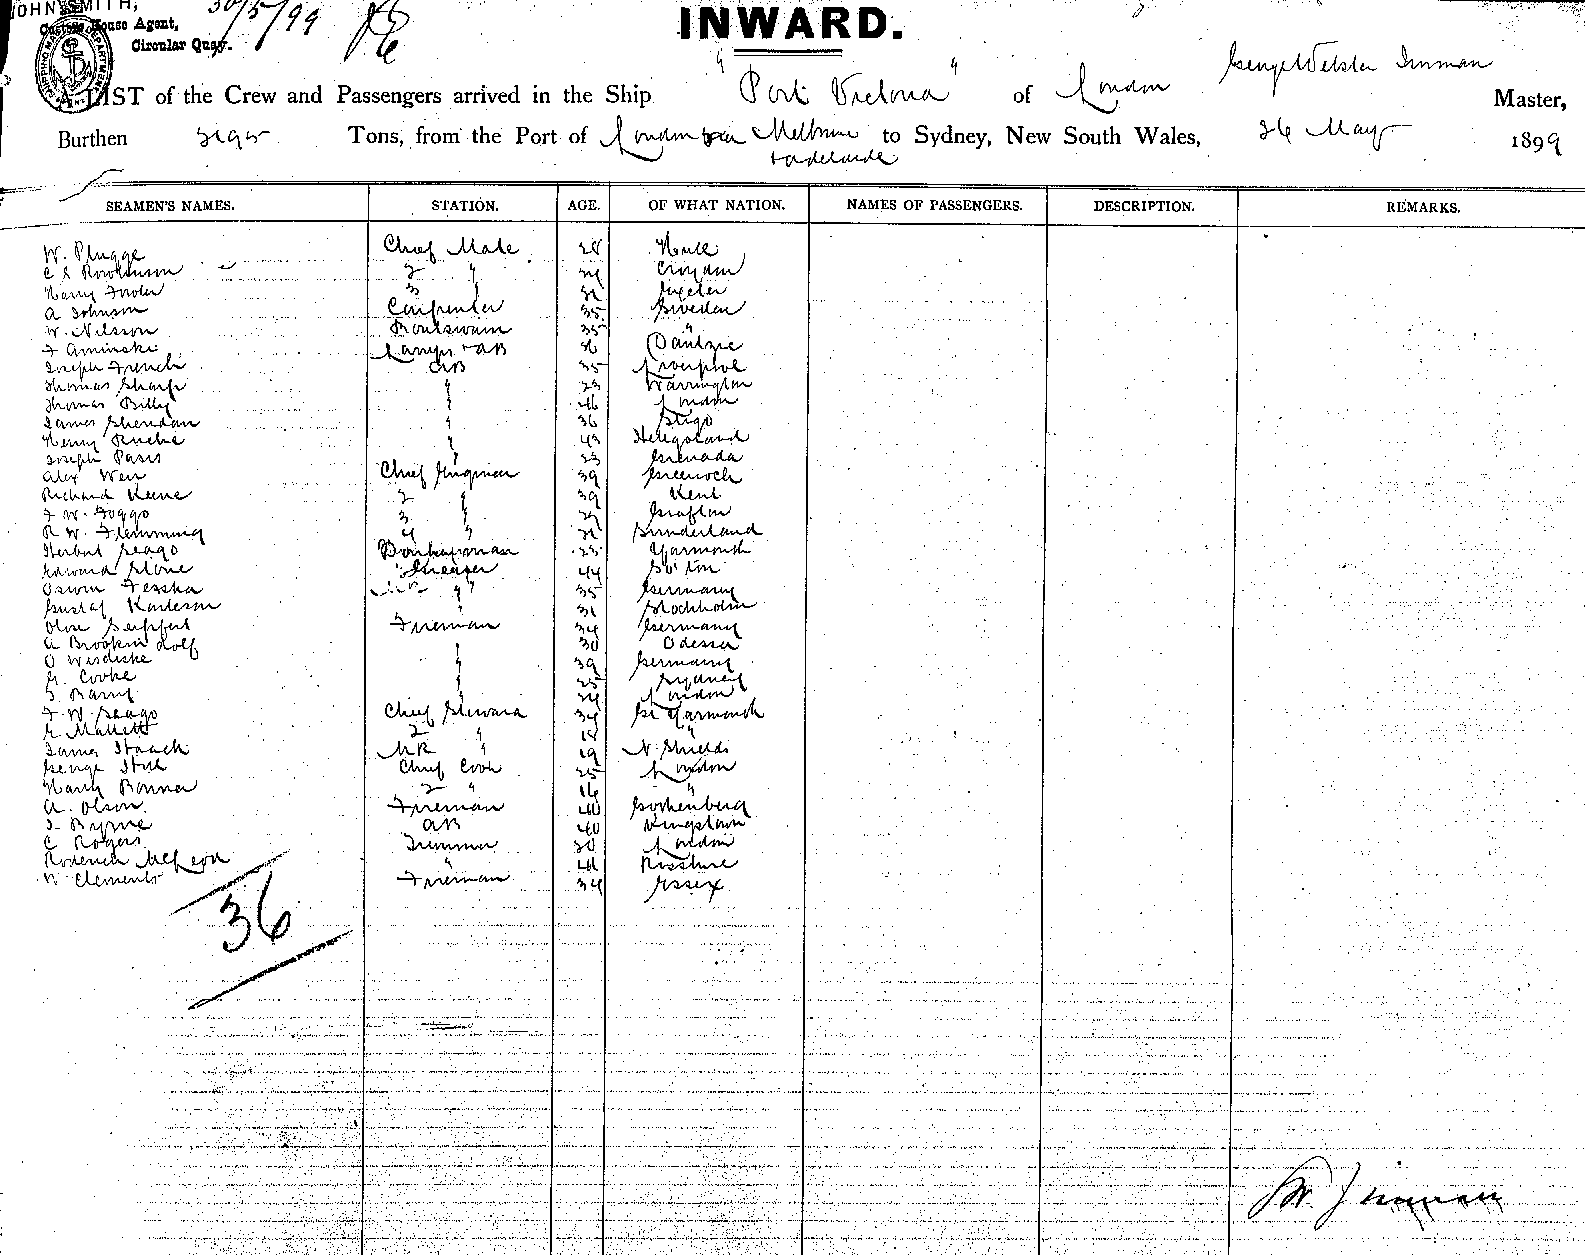 JOHN SMITH,
Custom House Agent,
Circular Quay.
30/5/99
INWARD.
George Webster Inman
A LIST of the Crew and Passengers arrived in the Ship "Port Victoria" of London Master,
Burthen Tons, from the Port of London via Melbourne to Sydney, New South Wales, 26 May 1899
+ Adelaide
SEAMEN'S NAMES. STATION. AGE. OF WHAT NATION. NAMES OF PASSENGERS. DESCRIPTION. REMARKS.
W. Plugge Chief Mate 28 Hull
C S Rowlinson 2 " 24 Croydon
Harry Fowler 3 " Exeter
A Johnson Carpenter 35 Sweden
W. Nilsson Boatswain 35 "
F Aminski Lamps + AB Dantzic
Joseph French AB 35 Liverpool
Thomas Sharp " 23 Warrington
Thomas Billy " 46 London
James Sheridan " 36 Sligo
Henry " 43 Heligoland
Joseph Paris " 23 Grenada
Alex Weir Chief Engineer 39 Greenock
Richard Keene 2 " 39 Kent
F W. Foggo 3 " Grafton
R W. Flemming 4 " Sunderland
Herbert Seago Donkeyman 23 Yarmouth
Edward Stone Greaser 44
Oswin " 35 Germany
Gustaf Karlsson " 31 Stockholm
Seipfert Fireman 34 Germany
A 30 Odessa
O " 39 Germany
G. Cooke " 25 Sydney
" 24 London
F. W. Seago Chief Steward 34 Gt Yarmouth
G Mallett 2 " 18 "
James Staack " 19 N. Shields
George Chief Cook 25 London
Harry Bonner 2 " 16 "
A. Olson Fireman 40 Gothenberg
Byrne AB 40 Kingstown
C Rogers Trimmer London
Roderick McLeod " Rosshire
Clements Fireman 34 Essex
36
G W. Inman